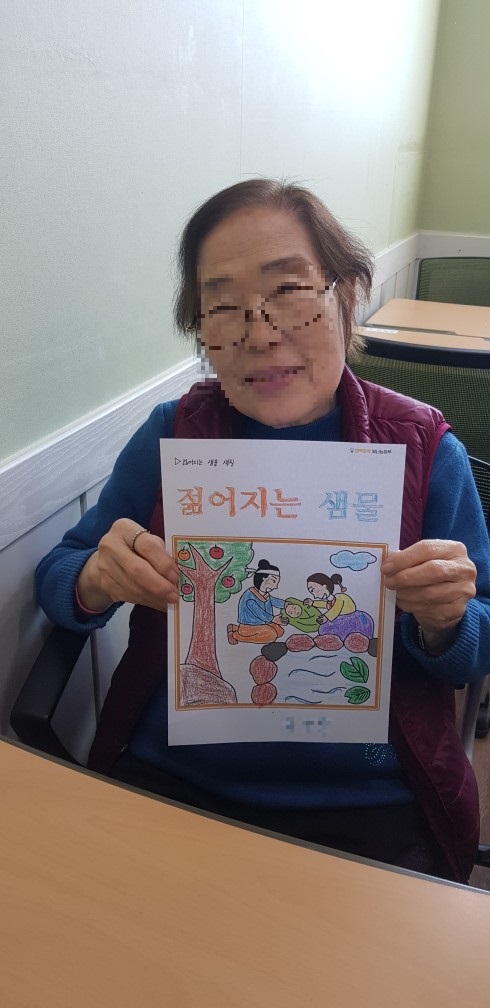 ▷젊어지는 샘물 색칠
젊어지는 샘물